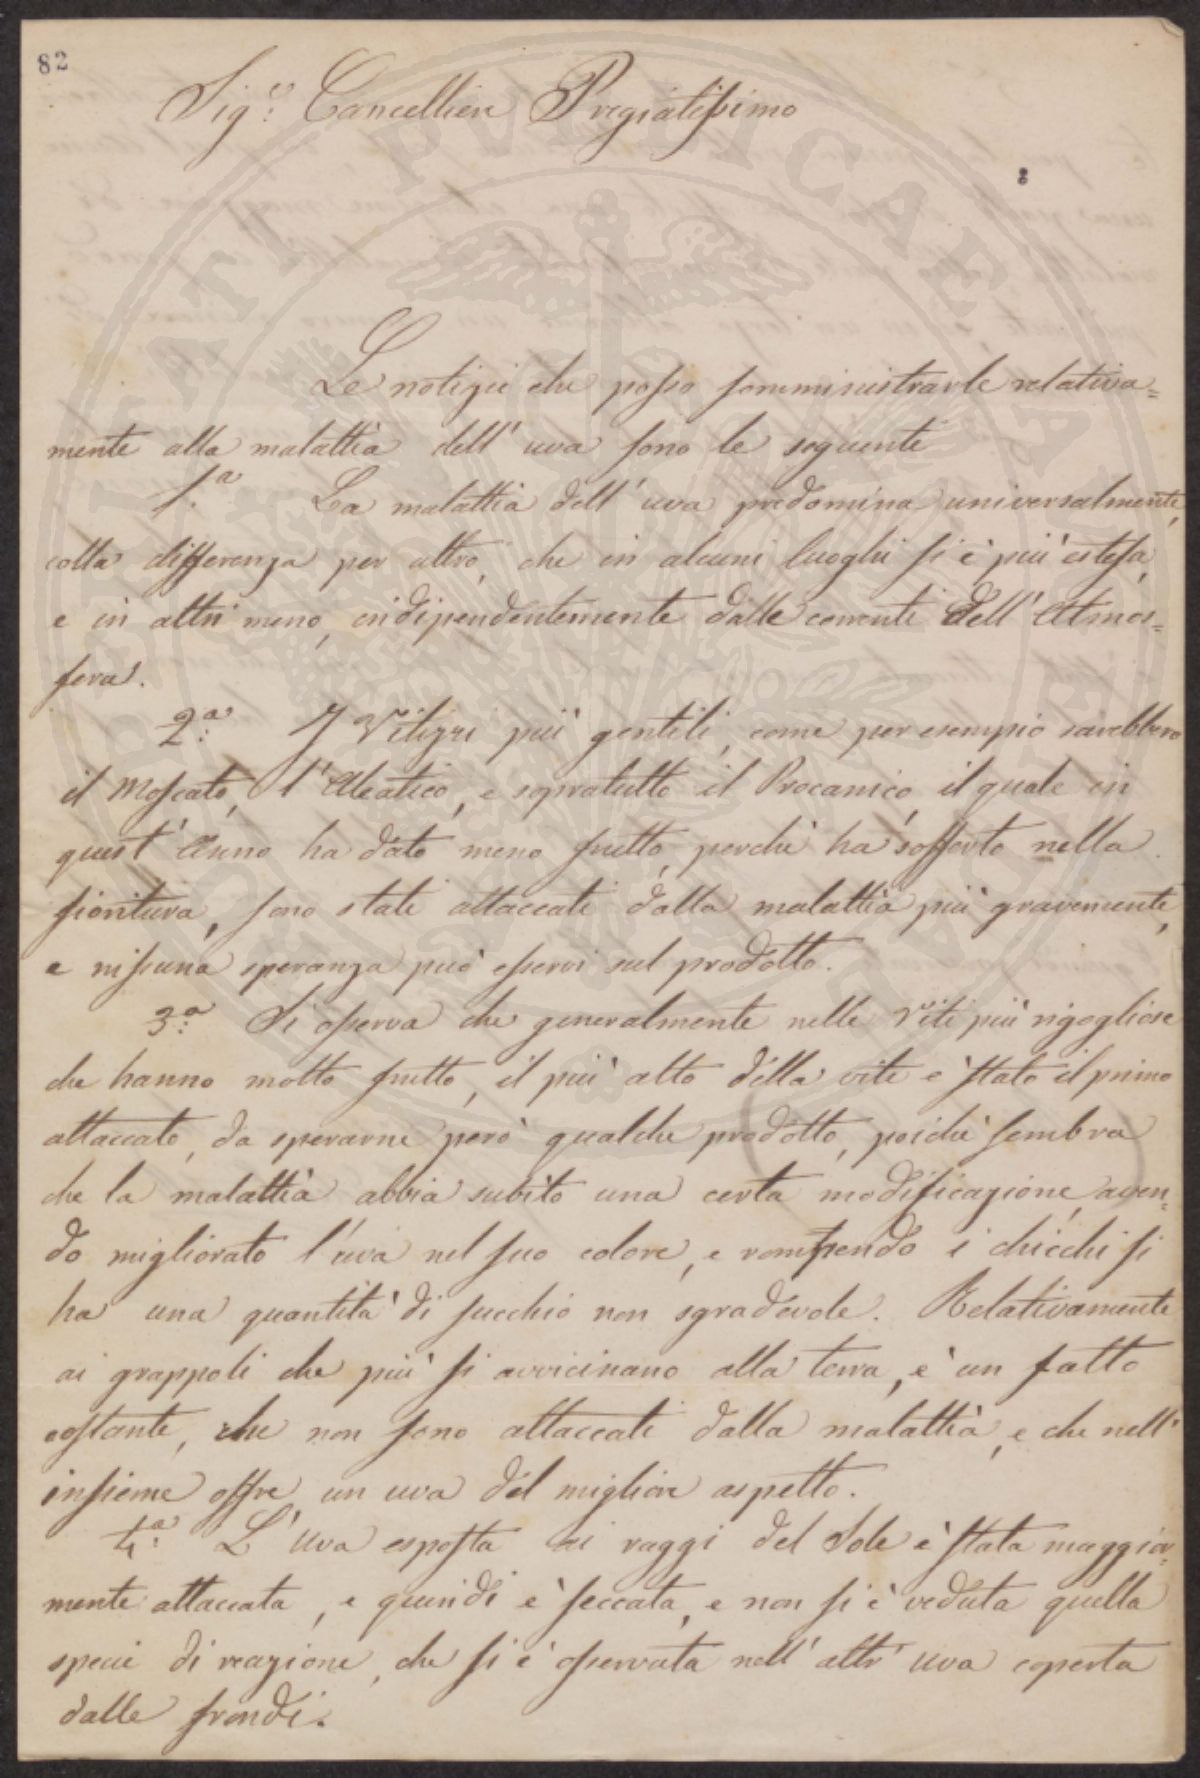 82
Sig.re Cancelliere Pregiatissimo
Le notizie che posso somministrarle relativa=
mente alla malattia dell'uva sono le seguenti
1.a La malattia dell'uva predomina universalmente,
colla differenza per altro, che in alcuni luoghi si è più estesa,
e in altri meno, indipendentemente dalle correnti dell'Atmos=
fera.
2.a I Vitigni più gentili, come per esempio sarebbero
il Moscato, l'Aleatico, e sopratutto il Procanico, il quale in
quest'Anno ha dato meno frutto, perchè ha sofferto nella
fioritura, sono stati attaccati dalla malattia più gravemente,
e nissuna speranza può esservi sul prodotto.
3.a Si osserva che generalmente nelle Viti più rigogliose
che hanno molto frutto, il più alto della vite è stato il primo
attaccato, da sperarne però qualche prodotto, poichè sembra
che la malattia abbia subìto una certa modificazione, aven=
do migliorato l'uva nel suo colore, e rompendo i chicchi si
ha una quantità di succhio non sgradevole. Relativamente
ai grappoli che più si avvicinano alla terra, è un fatto
costante, che non sono attaccati dalla malattia, e che nell'
insieme offre un uva del migliore aspetto.
4.a L'Uva esposta ai raggi del Sole è stata maggior=
mente attaccata, e quindi è seccata, e non si è veduta quella
specie di reazione, che si è osservata nell'altr'uva coperta
dalle frondi.